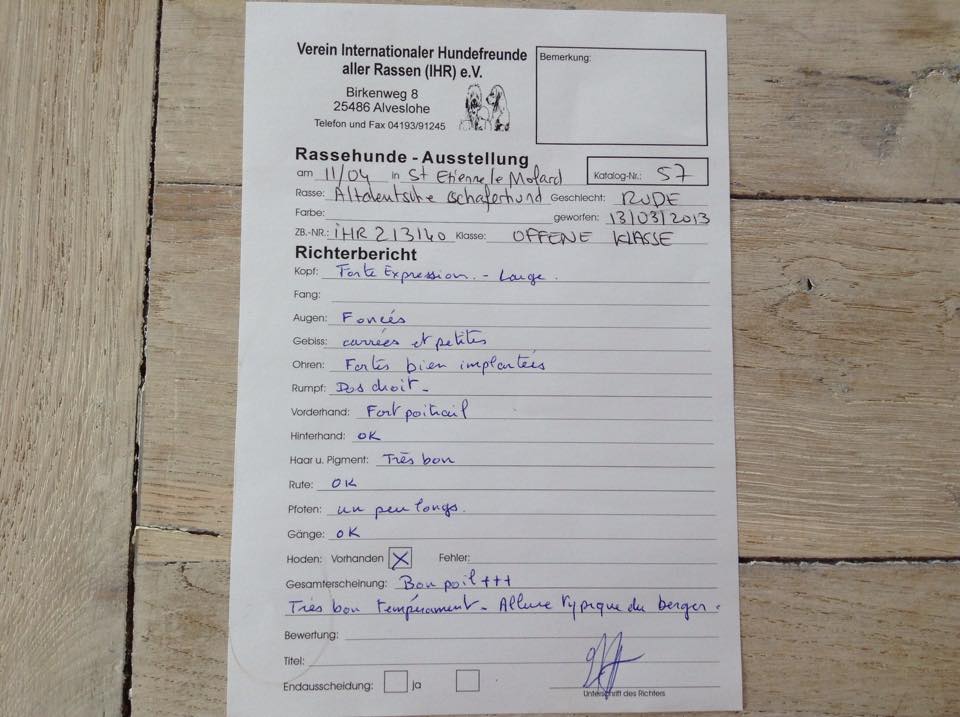 Verein Internationaler Hundefreunde
aller Rassen (IHR) e.V.
Birkenweg 8
25486 Alveslohe
Telefon und Fax 04193/91245
Bemerkung:
Rassehunde - Ausstellung
am 11/04 in St Etienne le Molard
Katalog-Nr.: 57
Rasse: Altdeutsche Schäferhund Geschlecht: RUDE
Farbe: geworfen: 13/03/2013
ZB.-NR.: iHR 213140 Klasse: OFFENE KLASSE
Richterbericht
Kopf: Forte Expression. - Large.
Fang:
Augen: Foncés
Gebiss: carrées et petites
Ohren: Fortes bien implantées
Rumpf: Dos droit -
Vorderhand: Fort poitrail
Hinterhand: OK
Haar u. Pigment: Très bon
Rute: OK
Pfoten: un peu longs.
Gänge: OK
Hoden: Vorhanden X Fehler:
Gesamterscheinung: Bon poil +++
Très bon tempérament - Allure typique du berger.
Bewertung:
Titel:
Endausscheidung: ja
Unterschrift des Richters